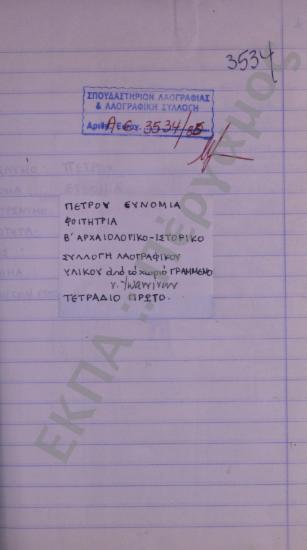 3534
ΣΠΟΥΔΑΣΤΗΡΙΟΝ ΛΑΟΓΡΑΦΙΑΣ
& ΛΑΟΓΡΑΦΙΚΗ ΣΥΛΛΟΓΗ
Αριθ. Εισαγ. Α.Ε. 3534/85
ΠΕΤΡΟΥ ΕΥΝΟΜΙΑ
ΦΟΙΤΗΤΡΙΑ
Β' ΑΡΧΑΙΟΛΟΓΙΚΟ-ΙΣΤΟΡΙΚΟ
ΣΥΛΛΟΓΗ ΛΑΟΓΡΑΦΙΚΟΥ
ΥΛΙΚΟΥ από το χωριό ΓΡΑΜΜΕΝΟ
ν. Ιωαννίνων
ΤΕΤΡΑΔΙΟ ΠΡΩΤΟ.
ΕΚΠΑ ::: Πέργαμος